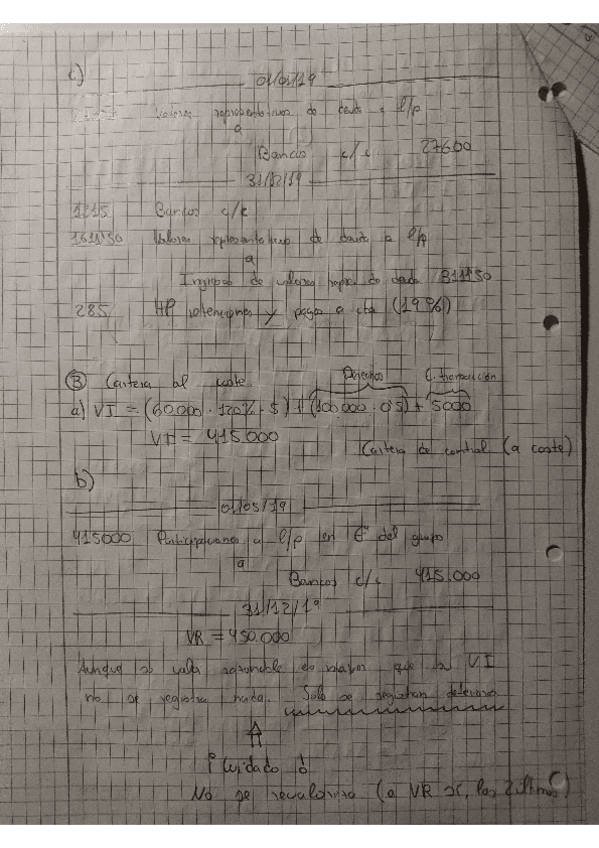 c)
01/01/19
Valores representativos de deuda a l/p
a
Bancos c/c 27600
31/12/19
1215 Bancos c/c
1611'50 Valores representativos de deuda a l/p
a
Ingresos de valores repre. de deuda
285 HP retenciones y pagos a cta (19%)
③ Cartera al coste
Derechos
a) VI = (60.000 · 120% · 5) + (100.000 · 0'5) + 5000
VI = 415.000
Cartera de control (a coste)
b)
01/05/19
415000 Participaciones a l/p en Eª del grupo
a
Bancos c/c 415.000
31/12/19
VR = 450.000
Aunque su valor razonable es mayor que su VI
no se registra nada. Solo se registran deterioros
¡Cuidado!
No se revaloriza (a VR sí, las 2 últimas)